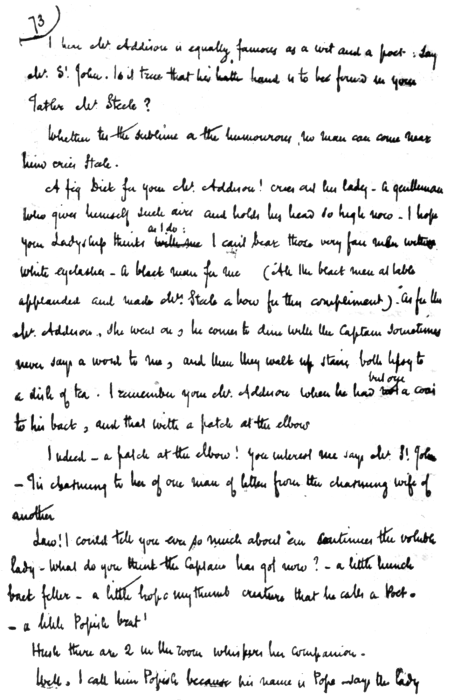 73
I hear Mr. Addison is equally famous as a wit and a poet: say
Mr. St. John. Is it true that his hand is to be found in your
Tatler Mr Steele?
Whether tis the sublime or the humourous, no man can come near
him cries Steele.
A fig Dick for your Mr. Addison! cries out his lady - a gentleman
who gives himself such airs and holds his head so high now - I hope
as I do:
your Ladyship thinks I can't bear those very fair men with
white eyelashes - a black man for me (All the black men at table
applauded and made Mrs. Steele a bow for this compliment) - As for this
Mr. Addison, she went on, he comes to dine with the Captain sometimes
never says a word to me, and then they walk up stairs both tipsy to
a dish of tea. I remember your Mr. Addison when he had
but one
a coat
to his back, and that with a patch at the elbow
Indeed - a patch at the elbow! you interest me says Mr St. John
- Tis charming to hear of one man of letters from the charming wife of
another
Law! I could tell you ever so much about 'em continues the voluble
lady - What do you think the Captain has got now? - a little hunch
back feller - a little hopo mythumb creature that he calls a Poet -
- a little Popish brat!
Hush there are 2 in the room whispers her companion -
Well, I call him Popish because his name is Pope - says the lady